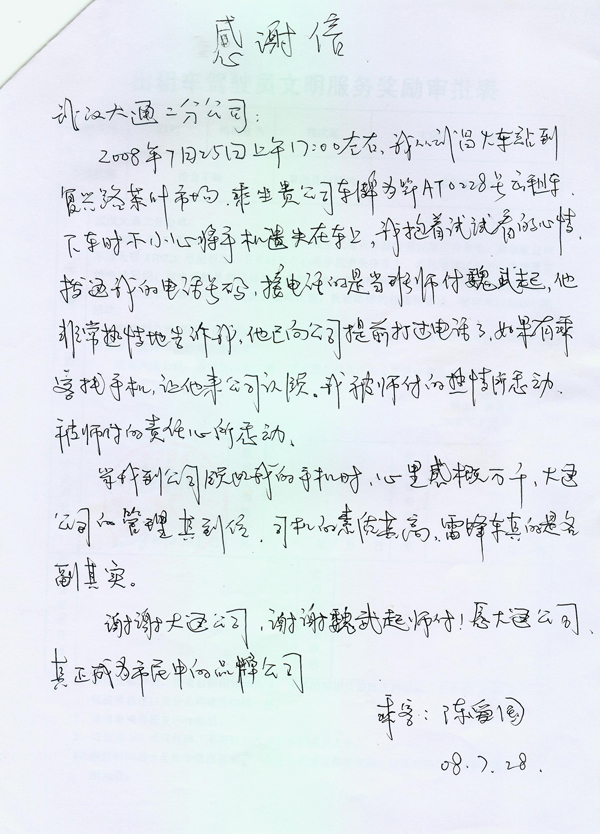 感谢信
武汉大通二分公司：
2008年7月25日上午17:00左右，我从武昌火车站到
复兴路茶叶市场，乘坐贵公司车牌为鄂AT0228号出租车，
下车时不小心将手机遗失在车上，我抱着试试看的心情，
拨通我的电话号码，接电话的是当班师付魏武起，他
非常热情地告诉我，他已向公司提前打过电话了，如果有乘
客找手机，让他来公司认领。我被师付的热情所感动，
被师付的责任心所感动。
当我到公司领取我的手机时，心里感概万千，大通
公司的管理真到位，司机的素质高，雷锋车真的是名
副其实。
谢谢大通公司，谢谢魏武起师付！愿大通公司，
真正成为市民中的品牌公司
乘客：陈爱国
08.7.28.